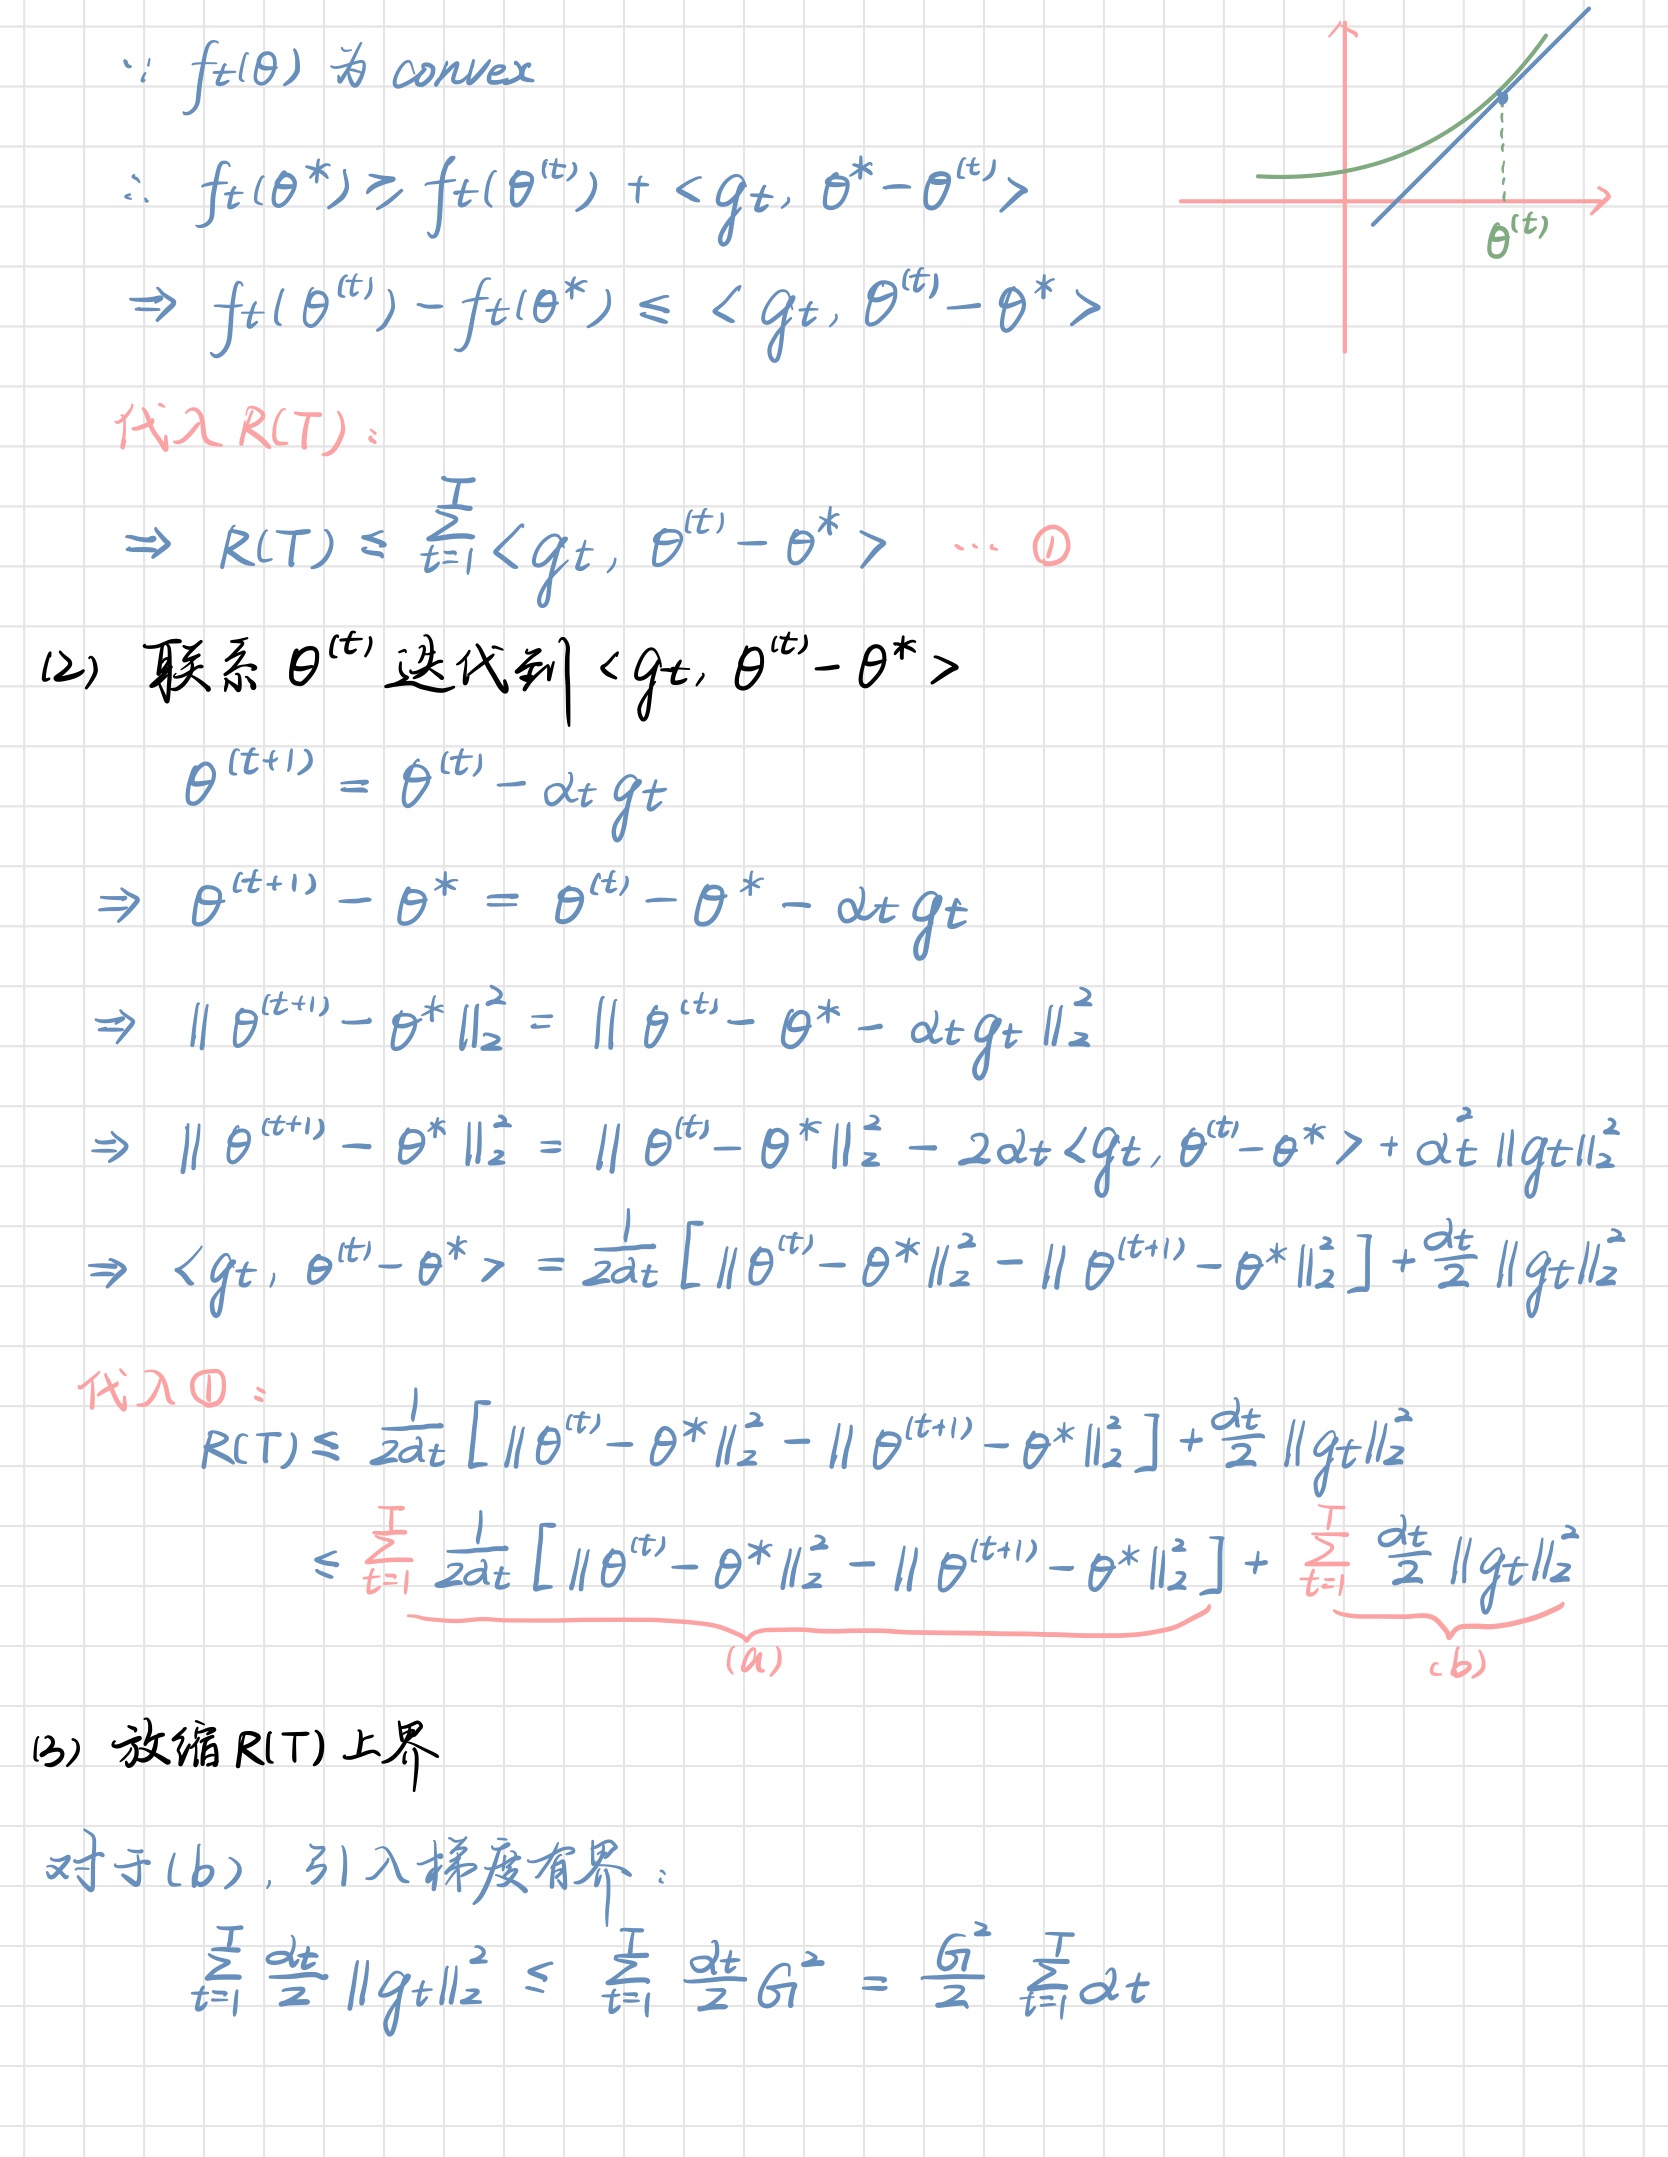 ∵ f_t(θ) 为 convex
∴ f_t(θ*) ≥ f_t(θ^(t)) + <g_t, θ* - θ^(t)>
θ^(t)
⇒ f_t(θ^(t)) - f_t(θ*) ≤ <g_t, θ^(t) - θ*>
代入 R(T):
⇒ R(T) ≤ Σ_{t=1}^{T} <g_t, θ^(t) - θ*> ... ①
(2) 联系 θ^(t) 迭代到 <g_t, θ^(t) - θ*>
θ^(t+1) = θ^(t) - α_t g_t
⇒ θ^(t+1) - θ* = θ^(t) - θ* - α_t g_t
⇒ ‖θ^(t+1) - θ*‖₂² = ‖θ^(t) - θ* - α_t g_t‖₂²
⇒ ‖θ^(t+1) - θ*‖₂² = ‖θ^(t) - θ*‖₂² - 2α_t <g_t, θ^(t) - θ*> + α_t² ‖g_t‖₂²
⇒ <g_t, θ^(t) - θ*> = 1/(2α_t) [‖θ^(t) - θ*‖₂² - ‖θ^(t+1) - θ*‖₂²] + α_t/2 ‖g_t‖₂²
代入①:
R(T) ≤ 1/(2α_t) [‖θ^(t) - θ*‖₂² - ‖θ^(t+1) - θ*‖₂²] + α_t/2 ‖g_t‖₂²
≤ Σ_{t=1}^{T} 1/(2α_t) [‖θ^(t) - θ*‖₂² - ‖θ^(t+1) - θ*‖₂²] + Σ_{t=1}^{T} α_t/2 ‖g_t‖₂²
(a) (b)
(3) 放缩 R(T) 上界
对于(b), 引入梯度有界:
Σ_{t=1}^{T} α_t/2 ‖g_t‖₂² ≤ Σ_{t=1}^{T} α_t/2 G² = G²/2 Σ_{t=1}^{T} α_t